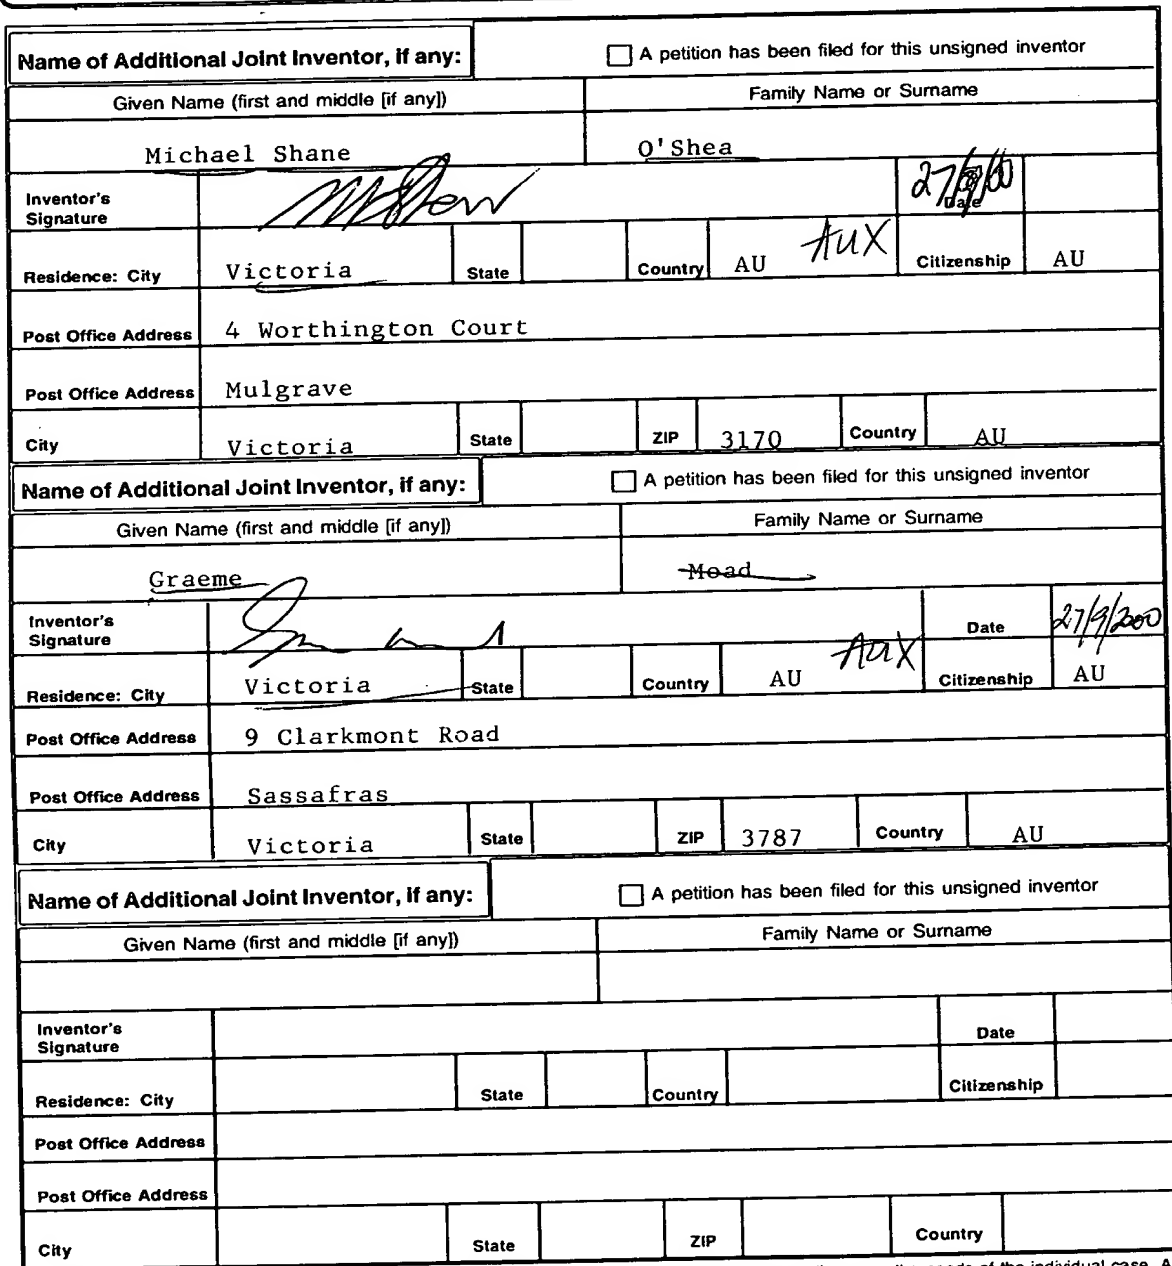 Name of Additional Joint Inventor, if any:
A petition has been filed for this unsigned inventor
Given Name (first and middle [if any])
Family Name or Surname
Michael Shane
O'Shea
Inventor's
Signature
Date
Residence: City
Victoria
State
Country
AU
AUX
Citizenship
AU
Post Office Address
4 Worthington Court
Post Office Address
Mulgrave
City
Victoria
State
ZIP
3170
Country
AU
Name of Additional Joint Inventor, if any:
A petition has been filed for this unsigned inventor
Given Name (first and middle [if any])
Family Name or Surname
Graeme
Moad
Inventor's
Signature
Date
27/9/2000
Residence: City
Victoria
State
Country
AU
AUX
Citizenship
AU
Post Office Address
9 Clarkmont Road
Post Office Address
Sassafras
City
Victoria
State
ZIP
3787
Country
AU
Name of Additional Joint Inventor, if any:
A petition has been filed for this unsigned inventor
Given Name (first and middle [if any])
Family Name or Surname
Inventor's
Signature
Date
Residence: City
State
Country
Citizenship
Post Office Address
Post Office Address
City
State
ZIP
Country
of the individual case. A